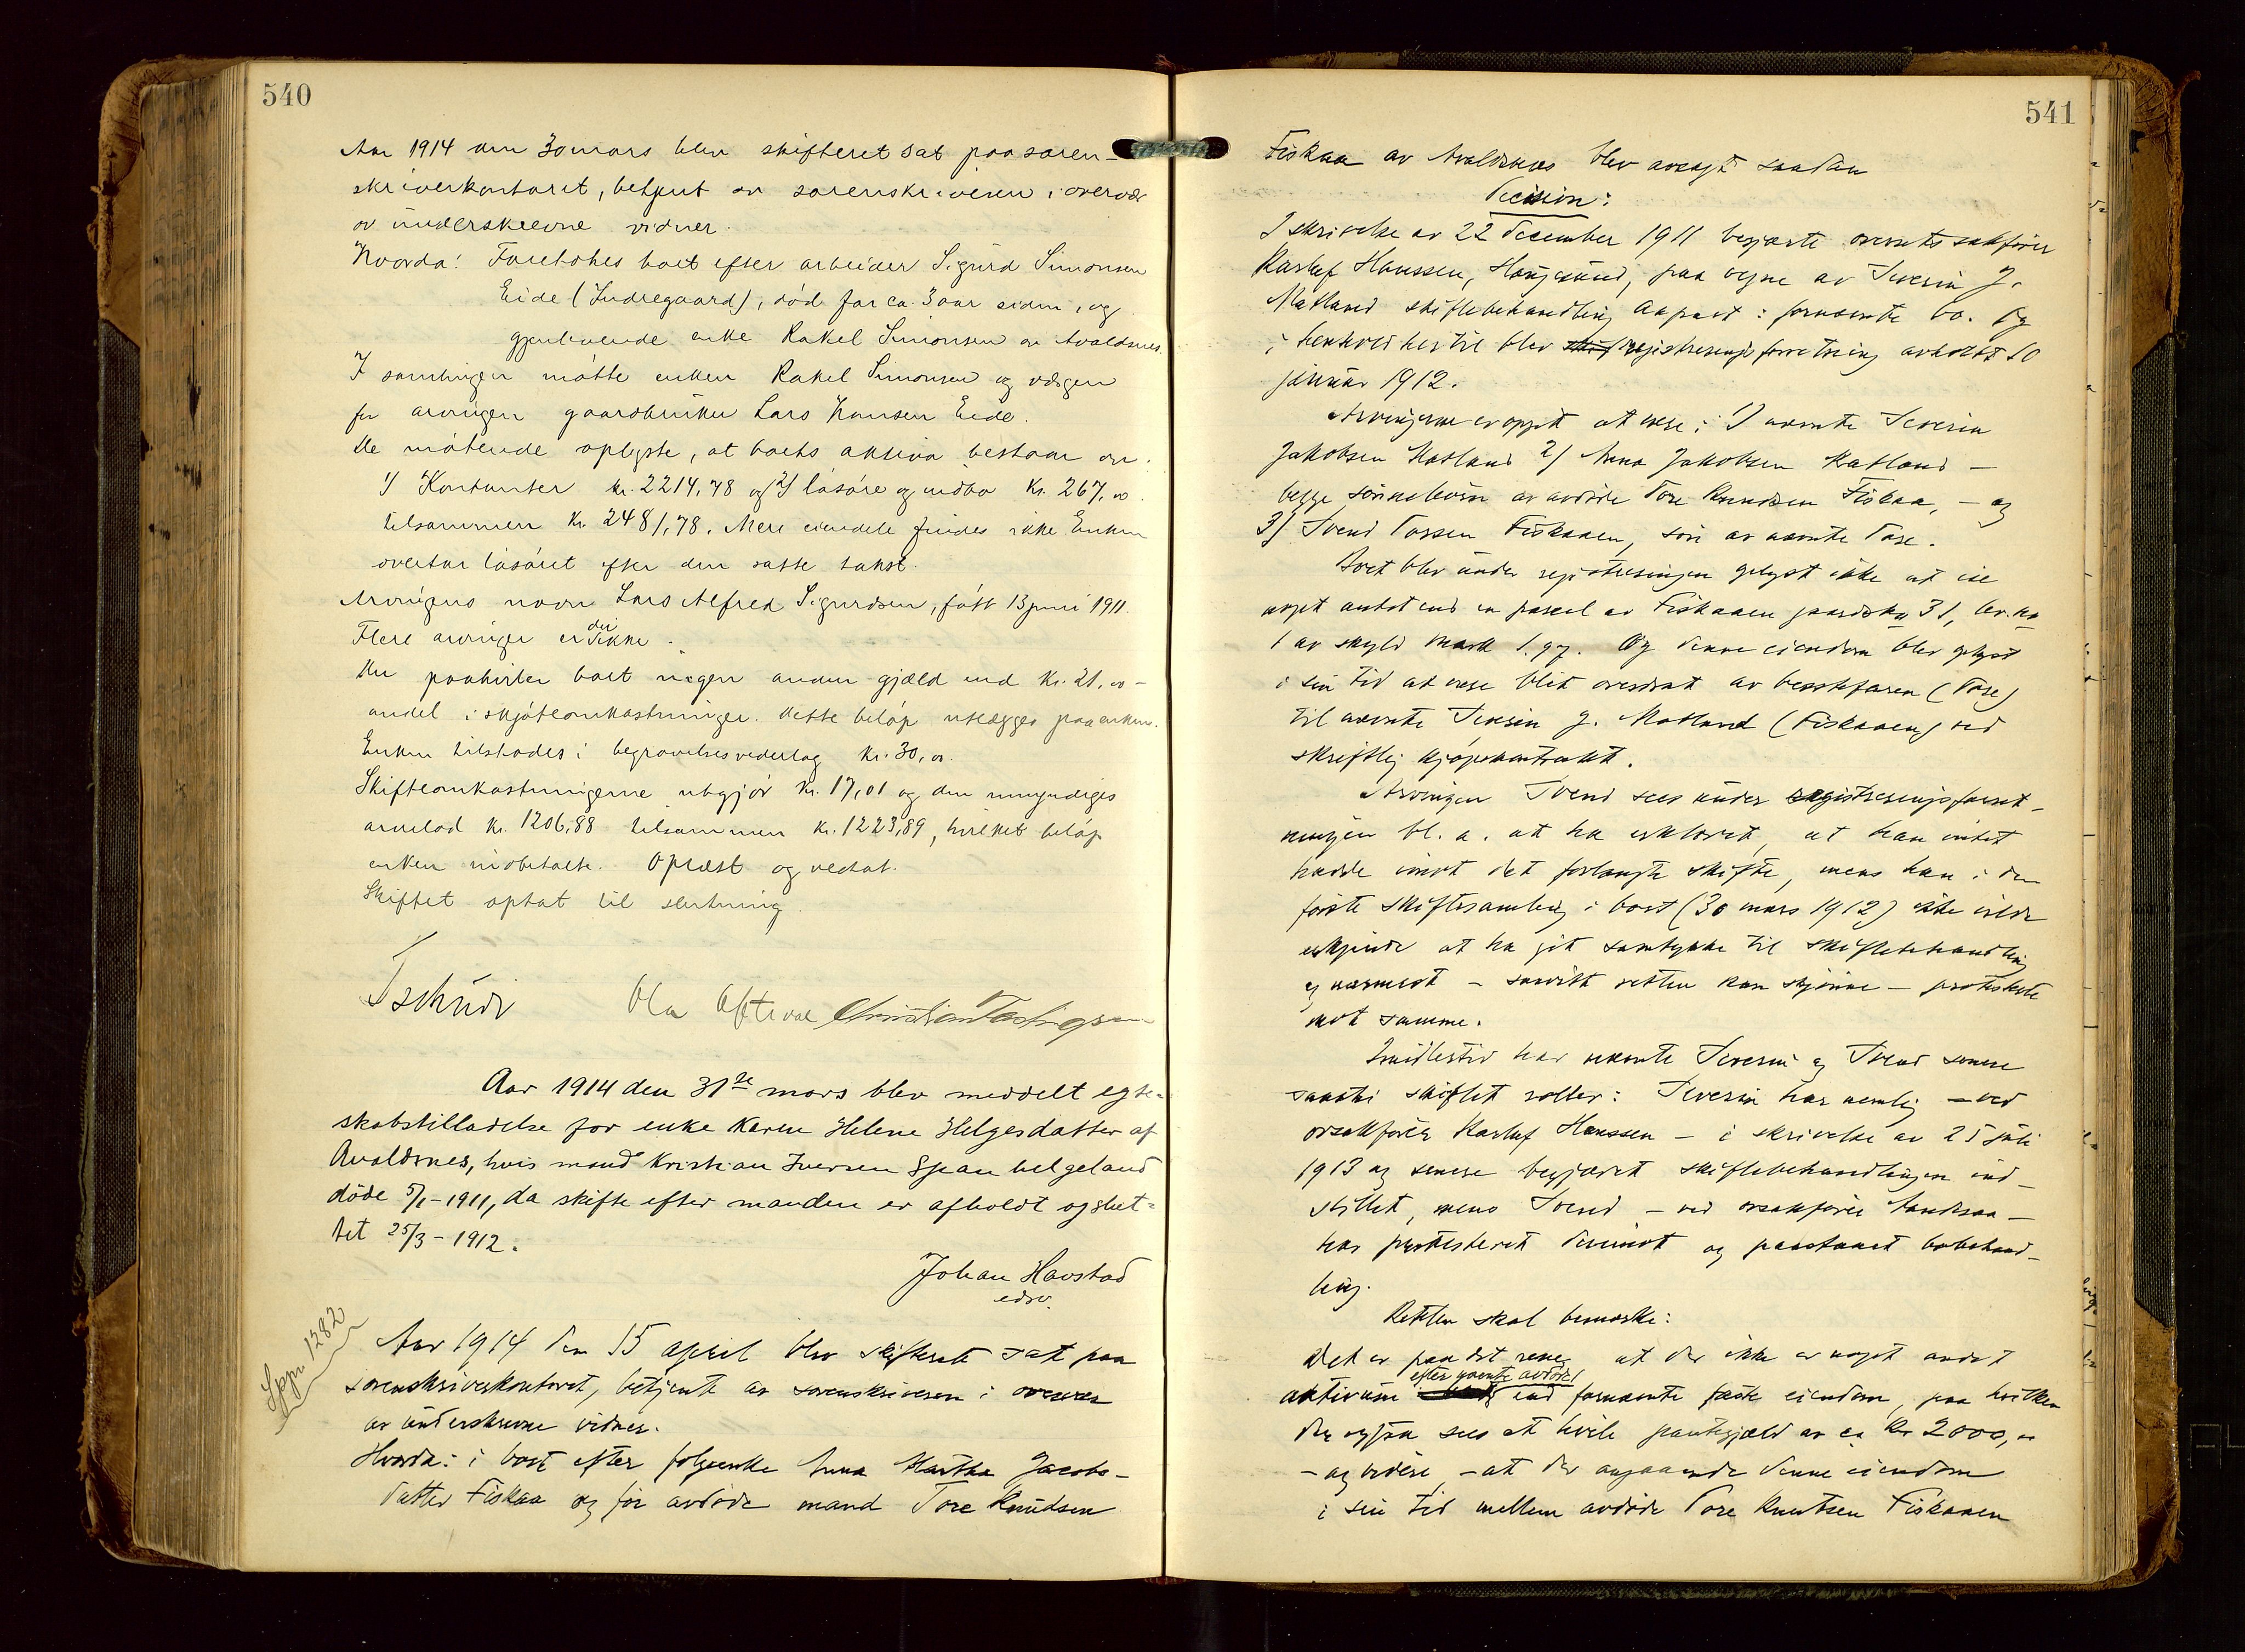 540
Aar 1914 den 30 mars blev skifteret sat paa soren-
skriverkontoret, betjent av sorenskriveren i overvær
av underskrevne vidner.
Hvorda: Foretokes boet efter arbeider Sigurd Simonsen
Eide (Indregaard), död for ca. 3 aar siden, og
gjenlevende enke Rakel Simonsen av Avaldsnes.
I samlingen mötte enken Rakel Simonsen og værgen
for arvingen gaardbruker Lars Hansen Eide.
De mötende oplyste, at boets aktiva bestaar av:
1) Kontanter kr. 2214,78 og 2) lösöre og indbo Kr. 267,00
tilsammen Kr. 2481,78. Mere eiendele findes ikke. Enken
overtar lösöret efter den satte takst.
Arvingens navn Lars Alfred Sigurdsen, föd 13 juni 1911.
Flere arvinger er der ikke.
Der paahviler boet ingen anden gjæld end Kr. 21,00 -
andel i skjöteomkostninger. Dette belöp utlægges paa enken.
Enken tilstodes i begravelsesvederlag Kr. 30,00.
Skifteomkostningerne utgjör Kr. 17,01 og den umyndiges
arvelod Kr. 1206,88 tilsammen Kr. 1223,89, hvilket belöp
enken indbetalte. Oplæst og vedtat.
Skiftet optat til slutning.
Tschudi Ola Christian
Aar 1914 den 31te mars blev meddelt egte-
skabstilladelse for enke Karen Helene Helgesdatter af
Avaldsnes, hvis mand Kristian Iversen Spanhelgeland
döde 5/1-1911, da skifte efter manden er afholdt og slut-
tet 25/3-1912.
Johan Havstad
edsv.
Sppr 1282
Aar 1914 den 15 april blev skifteret sat paa
sorenskriverkontoret, betjent av sorenskriveren i overvær
av underskrevne vidner.
Hvorda: i boet efter föl­geenke Anna Martha Jacobs-
datter Fiskaa og för avdöde mand Tore Knudsen
541
Fiskaa av Avaldsnes blev avsagt saadan
Decision:
I skrivelse av 22 december 1911 begjærte overretssakförer
Karluf Hanssen, Haugesund, paa vegne av Severin J.
Matland skiftebehandling aapnet i fornævnte bo. Og
i henhold hertil blev registreringsforretning avholdt 10
januar 1912.
Arvingerne er opgit at være: 1) nævnte Severin
Jakobsen Matland 2) Anna Jakobsen Matland -
begge sönnebörn av avdöde Tore Knudsen Fiskaa, - og
3) Svend Torsen Fiskaaen, sön av nævnte Tore.
Boet blev under registreringen oplyst ikke at eie
noget andet end en parcel av Fiskaaen gaardsno 31, br.no
1 av skyld mark 1.97. Og denne eiendom blev oplyst
i sin tid at være blit overdrat av bestefaren (Tore)
til nævnte Severin J. Matland (Fiskaaen) ved
skriftlig kjöpekontrakt.
Arvingen Svend sees under registreringsforret-
ningen bl. a. at ha erklæret, at han intet
hadde imot det forlangte skifte, mens han i den
förste skiftesamling i boet (30 mars 1912) ikke vilde
erkjende at ha git samtykke til skiftebehandling
og nærmest - saavidt retten kan skjönne - protesterte
mot samme.
Imidlertid har nævnte Severin og Svend senere
saa at si skiftet roller: Severin har nemlig - ved
orsakförer Karluf Hanssen - i skrivelse av 25 juli
1913 og senere begjæret skiftebehandlingen ind-
stillet, mens Svend - ved orsakförer -
har protesteret derimot og paastaaet bobehand-
ling.
Retten skal bemærke:
Det er paa det rene, at der ikke er noget andet
aktivum efter nævnte avdöde end fornævnte faste eiendom, paa hvilken
der ogsaa sees at hvile pantegjæld av ca kr 2000,00
- og videre - at der angaaende denne eiendom
i sin tid mellem avdöde Tore Knutsen Fiskaaen